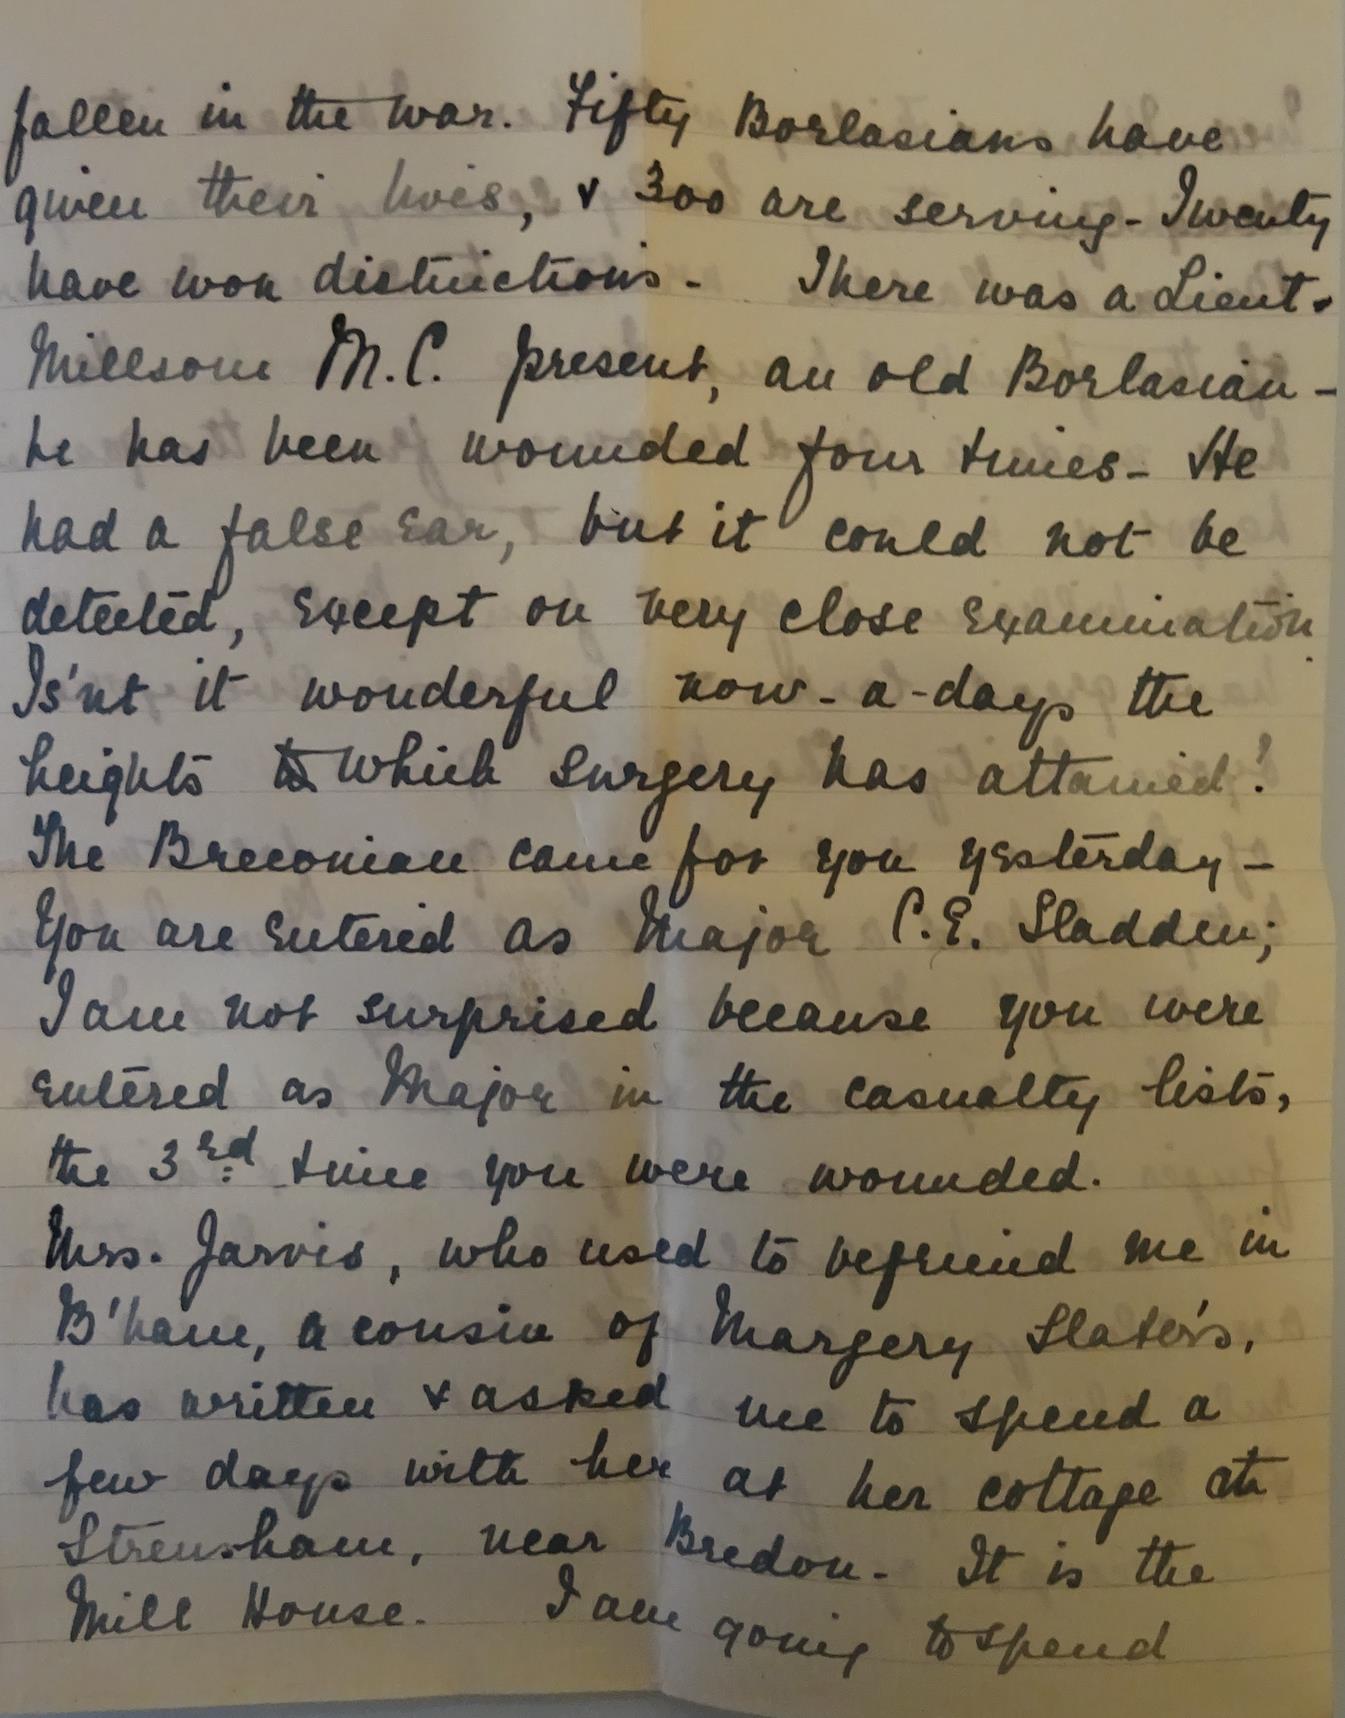 fallen in the war. Fifty Borlasians have
given their lives, & 300 are serving - Twenty
have won distinctions - There was a Lieut.
Millsom M.C. present, an old Borlasian -
he has been wounded four times - He
had a false ear, but it could not be
detected, except on very close examination.
Is'nt it wonderful now-a-days the
heights to which surgery has attained!
The Breconian came for you yesterday -
You are entered as Major C.E. Sladden;
I am not surprised because you were
entered as Major in the casualty lists,
the 3rd time you were wounded.
Mrs. Jarvis, who used to befriend me in
B'ham, a cousin of Margery Slater's,
has written & asked me to spend a
few days with her at her cottage at
Strensham, near Bredon - It is the
Mill House. I am going to spend